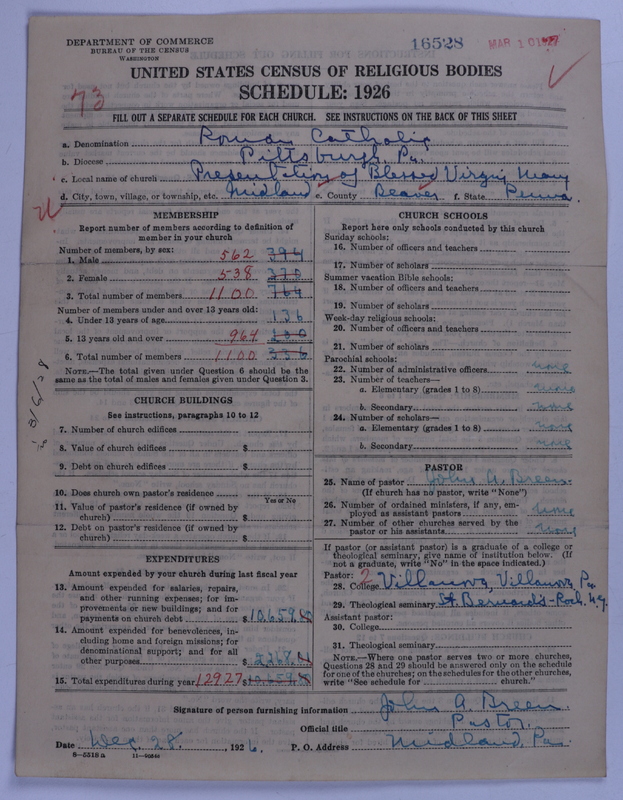 DEPARTMENT OF COMMERCE
BUREAU OF THE CENSUS
WASHINGTON
16528
MAR 10 1927
UNITED STATES CENSUS OF RELIGIOUS BODIES
SCHEDULE: 1926
73
FILL OUT A SEPARATE SCHEDULE FOR EACH CHURCH. SEE INSTRUCTIONS ON THE BACK OF THIS SHEET
a. Denomination Roman Catholic
b. Diocese Pittsburgh, Pa.
c. Local name of church Presentation of Blessed Virgin Mary
d. City, town, village, or township, etc. Midland e. County Beaver f. State Penna.
MEMBERSHIP
Report number of members according to definition of
member in your church
Number of members, by sex:
1. Male 562 394
2. Female 538 370
3. Total number of members 1100 764
Number of members under and over 13 years old:
4. Under 13 years of age 136
5. 13 years old and over 964 200
6. Total number of members 1100 336
NOTE.—The total given under Question 6 should be the
same as the total of males and females given under Question 3.
CHURCH BUILDINGS
See instructions, paragraphs 10 to 12
7. Number of church edifices
8. Value of church edifices $
9. Debt on church edifices $
10. Does church own pastor's residence
Yes or No
11. Value of pastor's residence (if owned by
church) $
12. Debt on pastor's residence (if owned by
church) $
EXPENDITURES
Amount expended by your church during last fiscal year
13. Amount expended for salaries, repairs,
and other running expenses; for im-
provements or new buildings; and for
payments on church debt $10,659.
14. Amount expended for benevolences, in-
cluding home and foreign missions; for
denominational support; and for all
other purposes 2268.
15. Total expenditures during year 12927 $10,659.
CHURCH SCHOOLS
Report here only schools conducted by this church
Sunday schools:
16. Number of officers and teachers
17. Number of scholars
Summer vacation Bible schools:
18. Number of officers and teachers
19. Number of scholars
Week-day religious schools:
20. Number of officers and teachers
21. Number of scholars
Parochial schools:
22. Number of administrative officers none
23. Number of teachers—
a. Elementary (grades 1 to 8) none
b. Secondary none
24. Number of scholars—
a. Elementary (grades 1 to 8) none
b. Secondary none
PASTOR
25. Name of pastor John A. Breen
(If church has no pastor, write "None")
26. Number of ordained ministers, if any, em-
ployed as assistant pastors none
27. Number of other churches served by the
pastor or his assistants none
If pastor (or assistant pastor) is a graduate of a college or
theological seminary, give name of institution below. (If
not a graduate, write "No" in the space indicated.)
Pastor: 2
28. College Villanova, Villanova, Pa.
29. Theological seminary St. Bernard's - Roch. N.Y.
Assistant pastor:
30. College
31. Theological seminary
NOTE.—Where one pastor serves two or more churches,
Questions 28 and 29 should be answered only on the schedule
for one of the churches; on the schedules for the other churches,
write "See schedule for church."
Signature of person furnishing information John A. Breen
Official title Pastor
Date Dec. 28. 1926. P. O. Address Midland, Pa.
8—5518 a